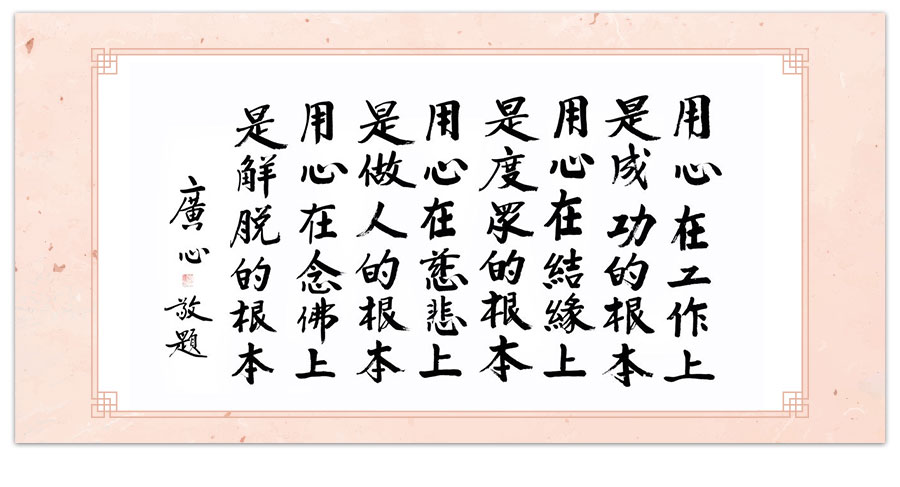 用心在工作上
是成功的根本
用心在結緣上
是度眾的根本
用心在慈悲上
是做人的根本
用心在念佛上
是解脫的根本
廣心 敬題